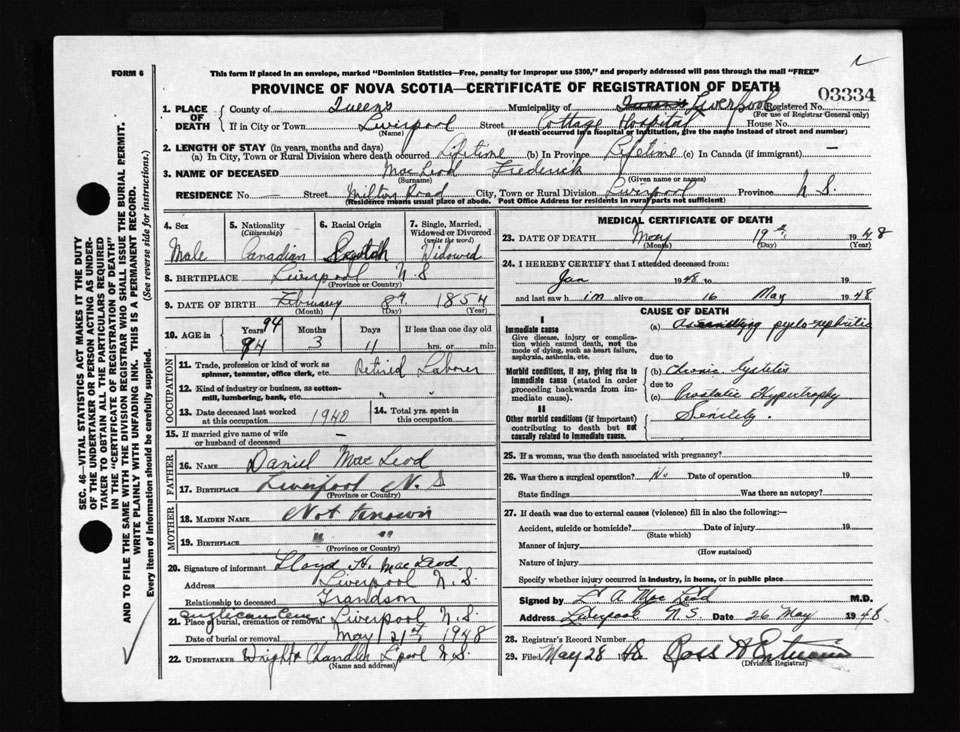 FORM 6
This form if placed in an envelope, marked "Dominion Statistics—Free, penalty for improper use $300," and properly addressed will pass through the mail "FREE"
PROVINCE OF NOVA SCOTIA—CERTIFICATE OF REGISTRATION OF DEATH
03334
1. PLACE OF DEATH
County of Queens Municipality of Queens Liverpool Registered No.
(For use of Registrar General only)
If in City or Town Liverpool Street Cottage Hospital House No.
(Name) (If death occurred in a hospital or institution, give the name instead of street and number)
2. LENGTH OF STAY (in years, months and days)
(a) In City, Town or Rural Division where death occurred Lifetime (b) In Province Lifetime (c) In Canada (if immigrant) —
3. NAME OF DECEASED MacLeod Frederick
(Surname) (Given name or names)
RESIDENCE No. — Street Milton Road City, Town or Rural Division Liverpool Province N.S.
(Residence means usual place of abode. Post Office Address for residents in rural parts not sufficient)
4. Sex Male
5. Nationality (Citizenship) Canadian
6. Racial Origin Scotch
7. Single, Married, Widowed or Divorced (write the word) Widowed
8. BIRTHPLACE Liverpool N.S
(Province or Country)
9. DATE OF BIRTH February 8th 1854
(Month) (Day) (Year)
10. AGE in Years 94 94 Months 3 Days 11 If less than one day old hrs. or min.
OCCUPATION
11. Trade, profession or kind of work as spinner, teamster, office clerk, etc. Retired Laborer
12. Kind of industry or business, as cotton-mill, lumbering, bank, etc. " "
13. Date deceased last worked at this occupation 1940
14. Total yrs. spent in this occupation
15. If married give name of wife or husband of deceased —
FATHER
16. NAME Daniel MacLeod
17. BIRTHPLACE Liverpool N.S
(Province or Country)
MOTHER
18. MAIDEN NAME Not known
19. BIRTHPLACE " "
(Province or Country)
20. Signature of informant Lloyd H. MacLeod
Address Liverpool N.S.
Relationship to deceased Grandson
21. Place of burial, cremation or removal Anglican Cem Liverpool N.S.
Date of burial or removal May 21st 1948
22. UNDERTAKER Wright & Chandler L'pool N.S.
(Name and address)
MEDICAL CERTIFICATE OF DEATH
23. DATE OF DEATH May 19th 1948
(Month) (Day) (Year)
24. I HEREBY CERTIFY that I attended deceased from:
Jan 1948 to
and last saw him alive on 16 May 1948
CAUSE OF DEATH
I
Immediate cause
Give disease, injury or complication which caused death, not the mode of dying, such as heart failure, asphyxia, asthenia, etc.
(a) Ascending pyelo-nephritis
due to
Morbid conditions, if any, giving rise to immediate cause (stated in order proceeding backwards from immediate cause).
(b) Chronic Cystitis
due to
(c) Prostatic Hypertrophy
II
Other morbid conditions (if important) contributing to death but not causally related to immediate cause.
Senility.
25. If a woman, was the death associated with pregnancy?
26. Was there a surgical operation? No Date of operation 19
State findings Was there an autopsy?
27. If death was due to external causes (violence) fill in also the following:—
Accident, suicide or homicide? Date of injury 19
(State which)
Manner of injury
(How sustained)
Nature of injury
Specify whether injury occurred in industry, in home, or in public place
Signed by A MacLeod M.D.
Address Liverpool N.S Date 26 May 1948
28. Registrar's Record Number
29. Filed May 28 1948 Ross
(Division Registrar)
SEC. 46—VITAL STATISTICS ACT MAKES IT THE DUTY
OF THE UNDERTAKER OR PERSON ACTING AS UNDER-
TAKER TO OBTAIN ALL THE PARTICULARS REQUIRED
IN THE "CERTIFICATE OF REGISTRATION OF DEATH"
AND TO FILE THE SAME WITH THE DIVISION REGISTRAR WHO SHALL ISSUE THE BURIAL PERMIT.
WRITE PLAINLY WITH UNFADING INK. THIS IS A PERMANENT RECORD.
Every item of information should be carefully supplied. (See reverse side for instructions.)